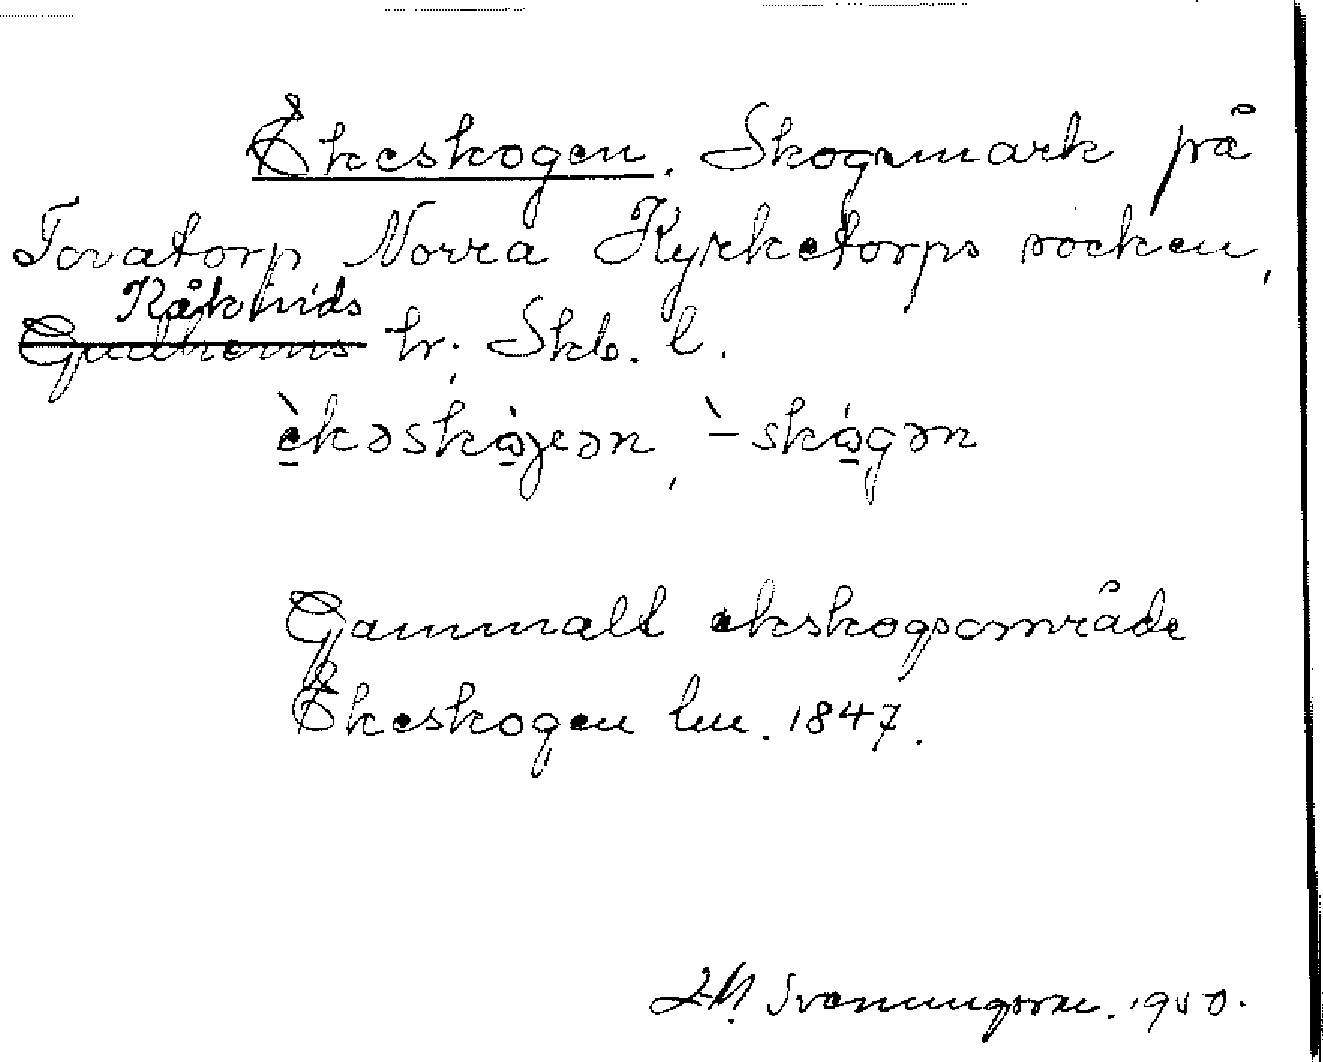 Ekeskogen. Skogsmark på
Tovatorp Norra Kyrketorps socken,
Kåkinds
Gudhems hr. Skb. l.
èkəskó̱gen, ̀-skó̱gən
Gammalt ekskogsområde
Ekeskogen lm. 1847.
Svenungsson. 1950.